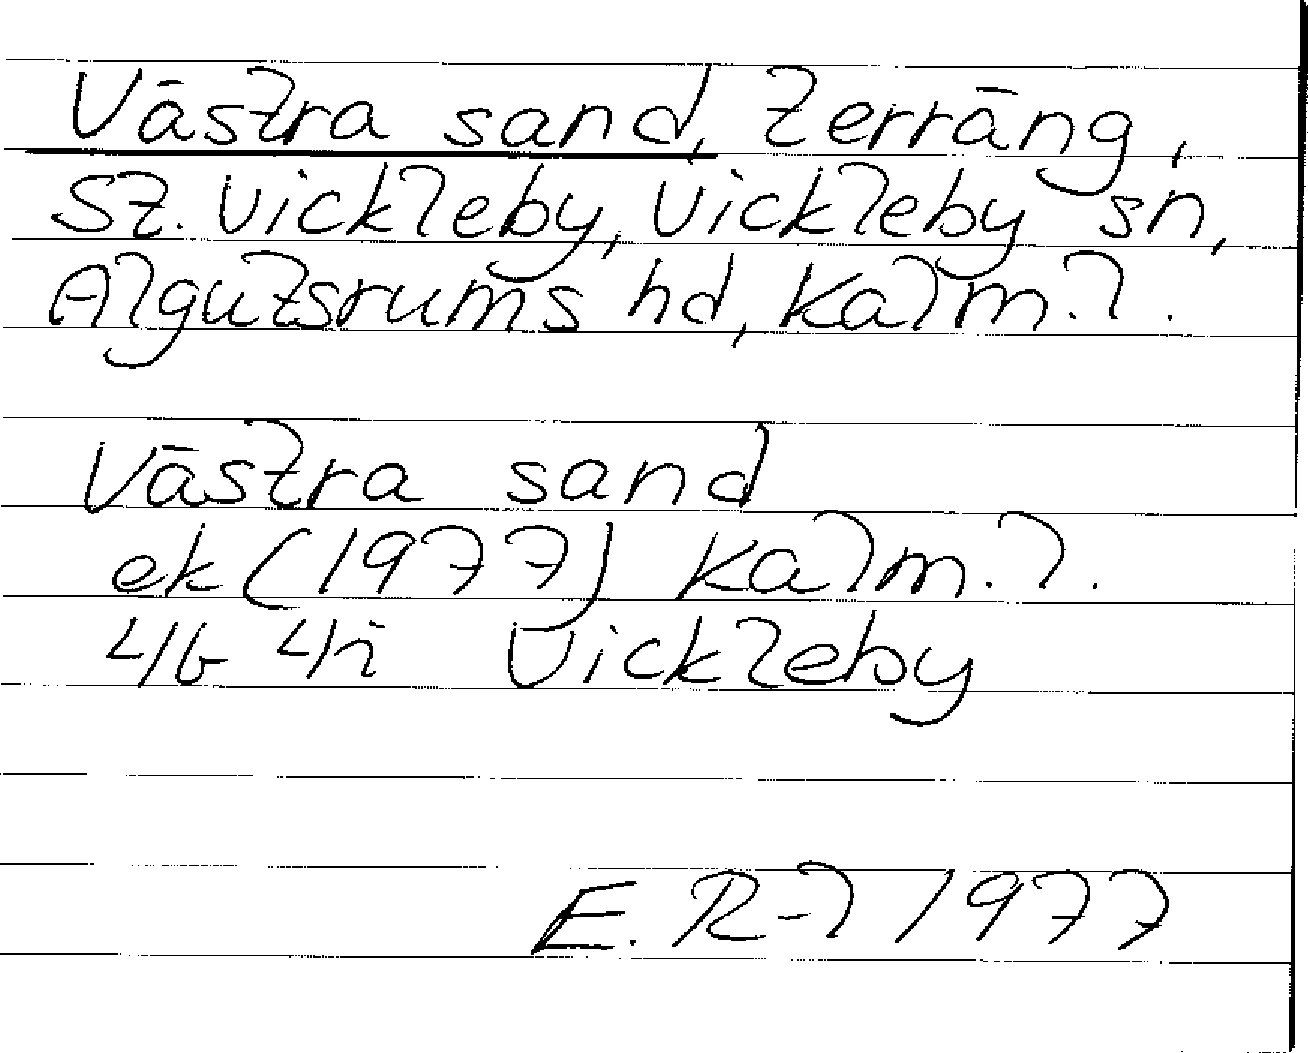 Västra sand, terräng,
St. Vickleby, Vickleby sn,
Algutsrums hd, Kalm. l.
Västra sand
ek (1977) Kalm. l.
4G 4h Vickleby
E. R-l 1977